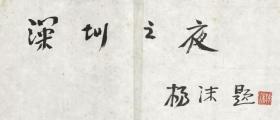 深圳之夜
杨沫题